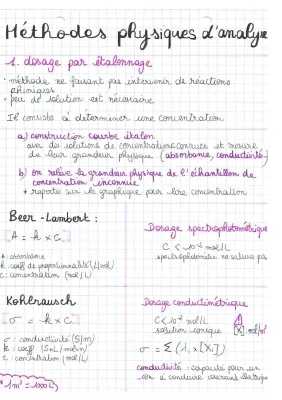 Méthodes physiques d'analyse
1. dosage par étalonnage
• méthode ne faisant pas intervenir de réactions
chimiques
• peu de solution est nécessaire
Il consiste à déterminer une concentration
a) construction courbe étalon
avec des solutions de concentrations connues et mesure
de leur grandeur physique (absorbance, conductivité)
b) on relève la grandeur physique de l'échantillon de
concentration inconnue
+ reporte sur le graphique pour lire concentration
Beer-Lambert :
Dosage spectrophotométrique
A = k × c
C < 10⁻² mol/L
spectrophotomètre ne sature pas
A : absorbance
k : coeff de proportionnalité (L/mol)
c : concentration (mol/L)
Kohlrausch
Dosage conductimétrique
σ = k × c
C < 10⁻² mol/L
solution ionique
[X] : mol/m³
σ : conductivité (S/m)
σ = Σ (λᵢ × [Xᵢ])
c : concentration (mol/L)
conductivité : capacité pour un
ion à conduire courant électrique
1m³ = 1000L